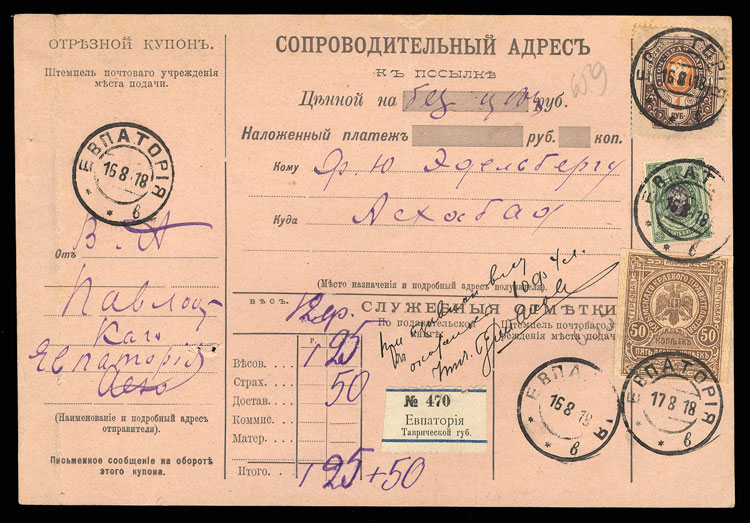 ОТРѢЗНОЙ КУПОНЪ.
Штемпель почтоваго учрежденія
мѣста подачи.
ЕВПАТОРІЯ
16 8 18
в
Отъ
В. А
Павлов
Евпаторія
(Наименованіе и подробный адресъ
отправителя).
Письменное сообщеніе на оборотѣ
этого купона.
СОПРОВОДИТЕЛЬНЫЙ АДРЕСЪ
КЪ ПОСЫЛКѢ
Цѣнной на без цѣны руб.
659
Наложенный платежъ руб. коп.
Кому Ф. Ю Эдельбергу
Куда Асхабад
(Мѣсто назначенія и подробный адресъ получателя).
ВѢСЪ.
СЛУЖЕБНЫЯ ОТМѢТКИ
По подательской
Штемпель почтоваго
учрежденія мѣста подачи
Р.
Вѣсов. 1 25
Страх.
Достав. 50
Коммис.
Матер.
Итого. 1 25+50
№ 470
Евпаторія
Таврической губ.
ЕВПАТОРІЯ
16 8 18
РУБ
ЕВПАТ
18
50 50
КОПѢЕКЪ
ПЯТЬДЕСЯТЪ КОПѢЕКЪ
ЕВПА ІЯ
16 8 18
в
ЕВПАТОРІЯ
17 8 18
в